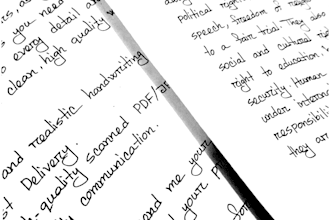 s you need
o every detail a
clean, high quality
and realistic handwriting
st Delivery.
h-quality scanned PDF/JP
y communication.
and me your
political rig
speech, freedom of
to a fair trial. They also
social and cultural
right to education
security. Human
under internat
responsibili
they are